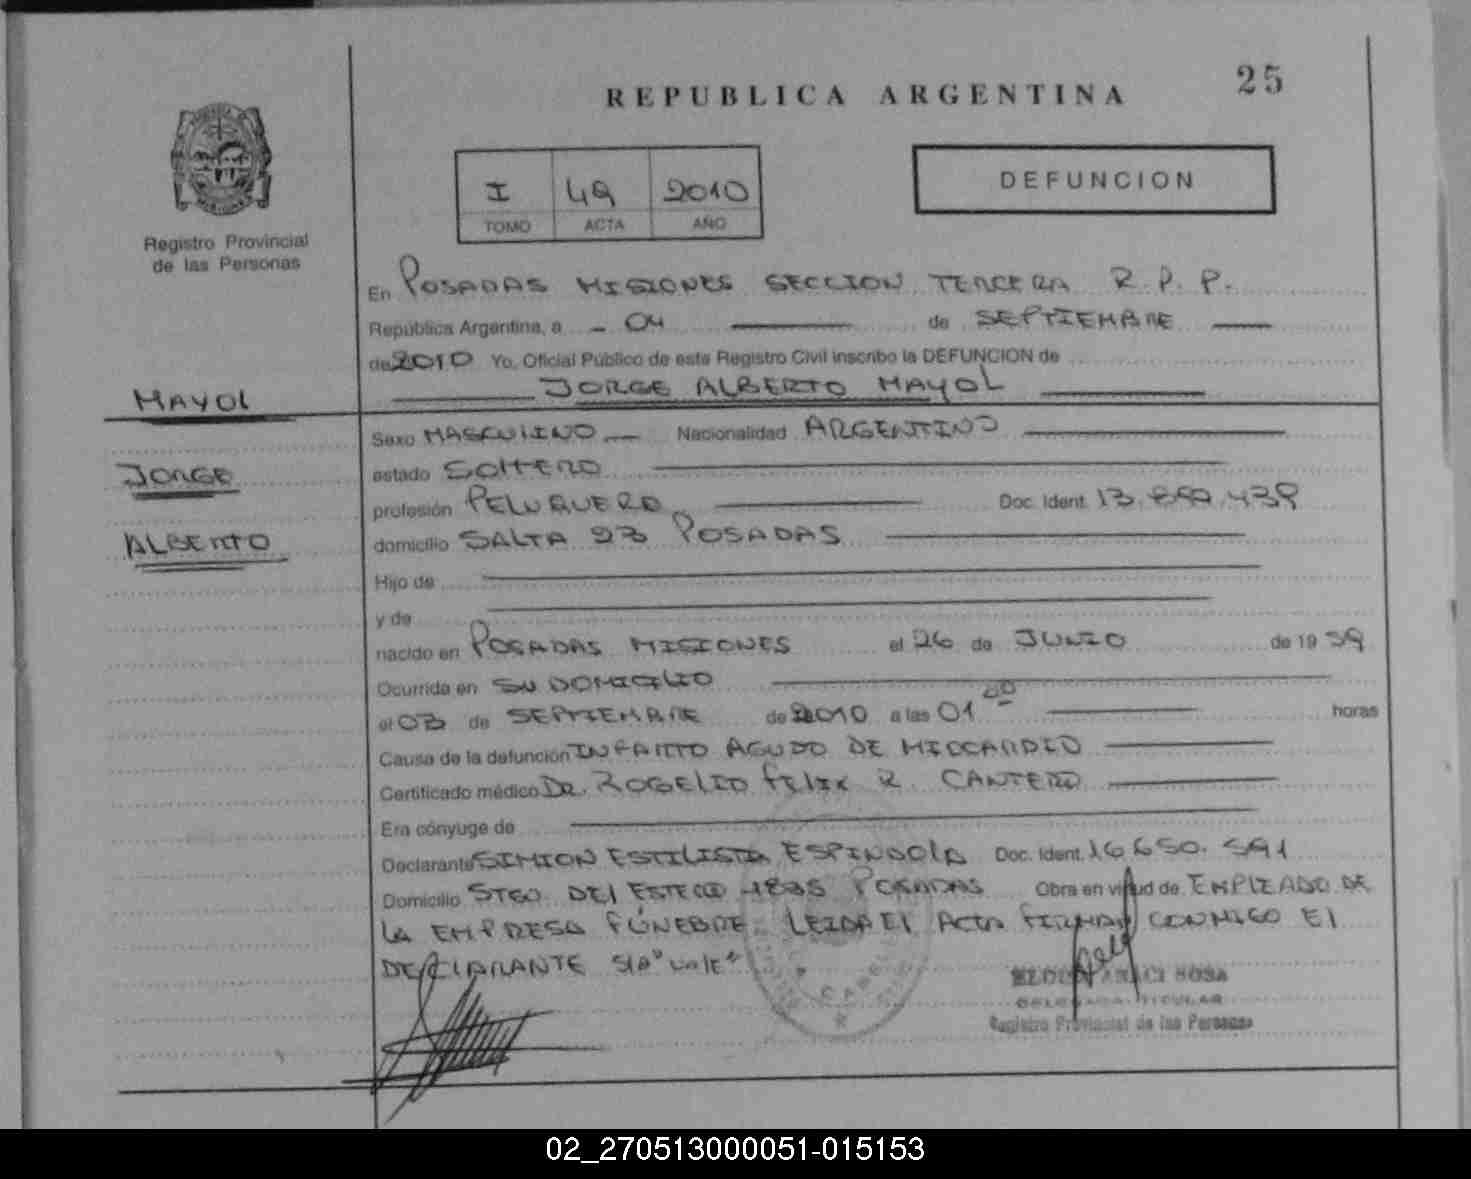 25
REPUBLICA ARGENTINA
I 49 2010
TOMO ACTA AÑO
DEFUNCION
Registro Provincial
de las Personas
En POSADAS MISIONES SECCION TERCERA R.P.P.
República Argentina, a - 04 de SEPTIEMBRE
de 2010 Yo, Oficial Público de este Registro Civil inscribo la DEFUNCION de
JORGE ALBERTO MAYOL
MAYOL
JORGE
ALBERTO
Sexo MASCULINO Nacionalidad ARGENTINO
estado SOLTERO
profesión PELUQUERO Doc. Ident. 13.
domicilio SALTA 23 POSADAS
Hijo de
y de
nacido en POSADAS MISIONES el 26 de JUNIO de 19 59
Ocurrida en SU DOMICILIO
el 03 de SEPTIEMBRE de 2010 a las 01 horas
Causa de la defunción INFARTO AGUDO DE MIOCARDIO
Certificado médico DR. ROGELIO FELIX R. CANTERO
Era cónyuge de
Declarante SIMION ESTILISTA ESPINDOLA Doc. Ident. 16650.591
Domicilio STGO. DEL ESTERO POSADAS Obra en virtud de EMPLEADO DE
LA EMPRESA FÚNEBRE. LEIDA EL ACTA FIRMAN CONMIGO EL
DECLARANTE S/A "vale"
SOSA
DELEGADA TITULAR
Registro Provincial de las Personas
02_270513000051-015153